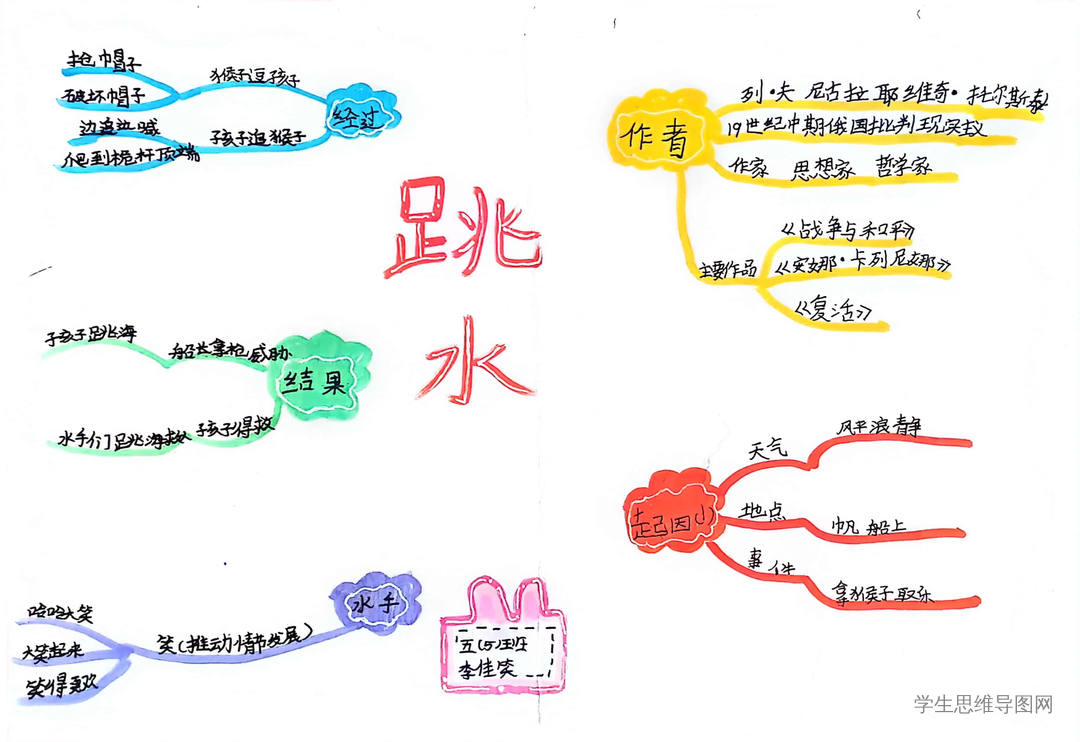 跳水
作者
列·夫 尼古拉耶维奇·托尔斯泰
19世纪中期俄国批判现实义
作家 思想家 哲学家
主要作品
《战争与和平》
《安娜·卡列尼娜》
《复活》
起因
天气
风平浪静
地点
帆船上
事件
拿猴子取乐
经过
猴子逗孩子
抢帽子
破坏帽子
孩子追猴子
边追边喊
爬到桅杆顶端
结果
船长拿枪威胁
孩子跳海
孩子得救
水手们跳海救人
水手
笑(推动情节发展)
哈哈大笑
大笑起来
笑得更欢
五(5)班
李佳笑
学生思维导图网